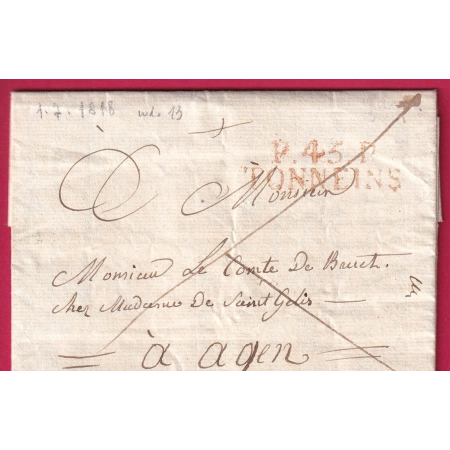 1.7.1818 ind. 13
P.45.P
TONNEINS
À Monsieur
Monsieur Le Comte De Bruch.
chez Madame De Saint Gelis
à agen